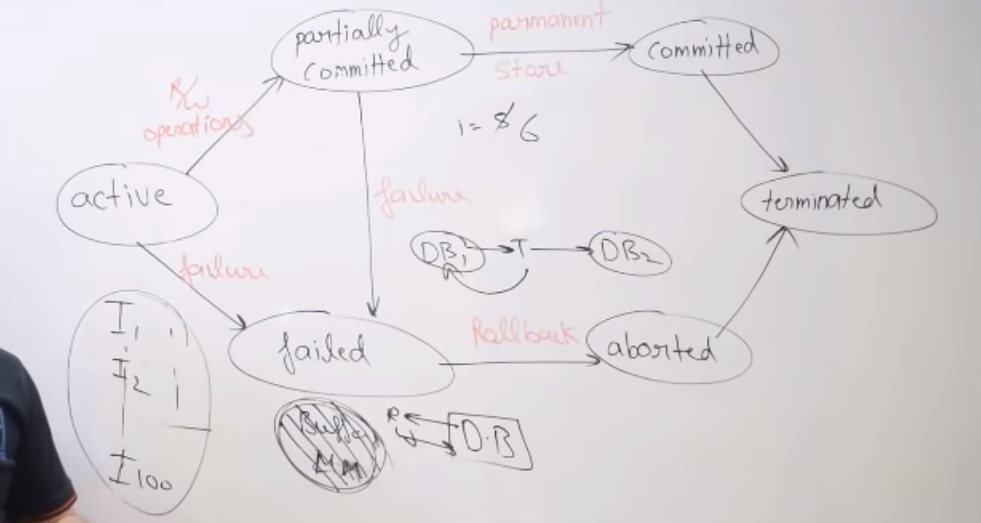 partially
committed
parmanent
store
committed
R/W
operations
i= 8 6
active
failure
terminated
DB1
T
DB2
failure
I1
I2
I100
failed
Rollback
aborted
R
W
D.B